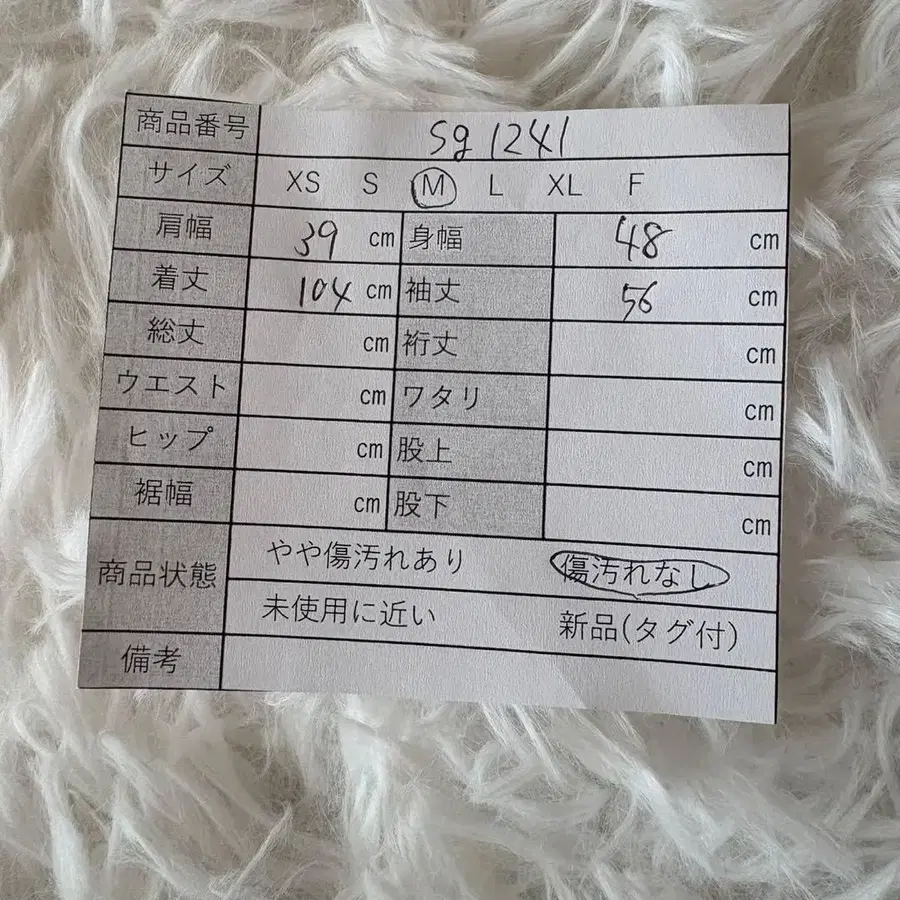 商品番号 sg 1241
サイズ XS S M L XL F
肩幅 39 cm 身幅 48 cm
着丈 104 cm 袖丈 56 cm
総丈 cm 裄丈 cm
ウエスト cm ワタリ cm
ヒップ cm 股上 cm
裾幅 cm 股下 cm
商品状態 やや傷汚れあり 傷汚れなし
未使用に近い 新品(タグ付)
備考